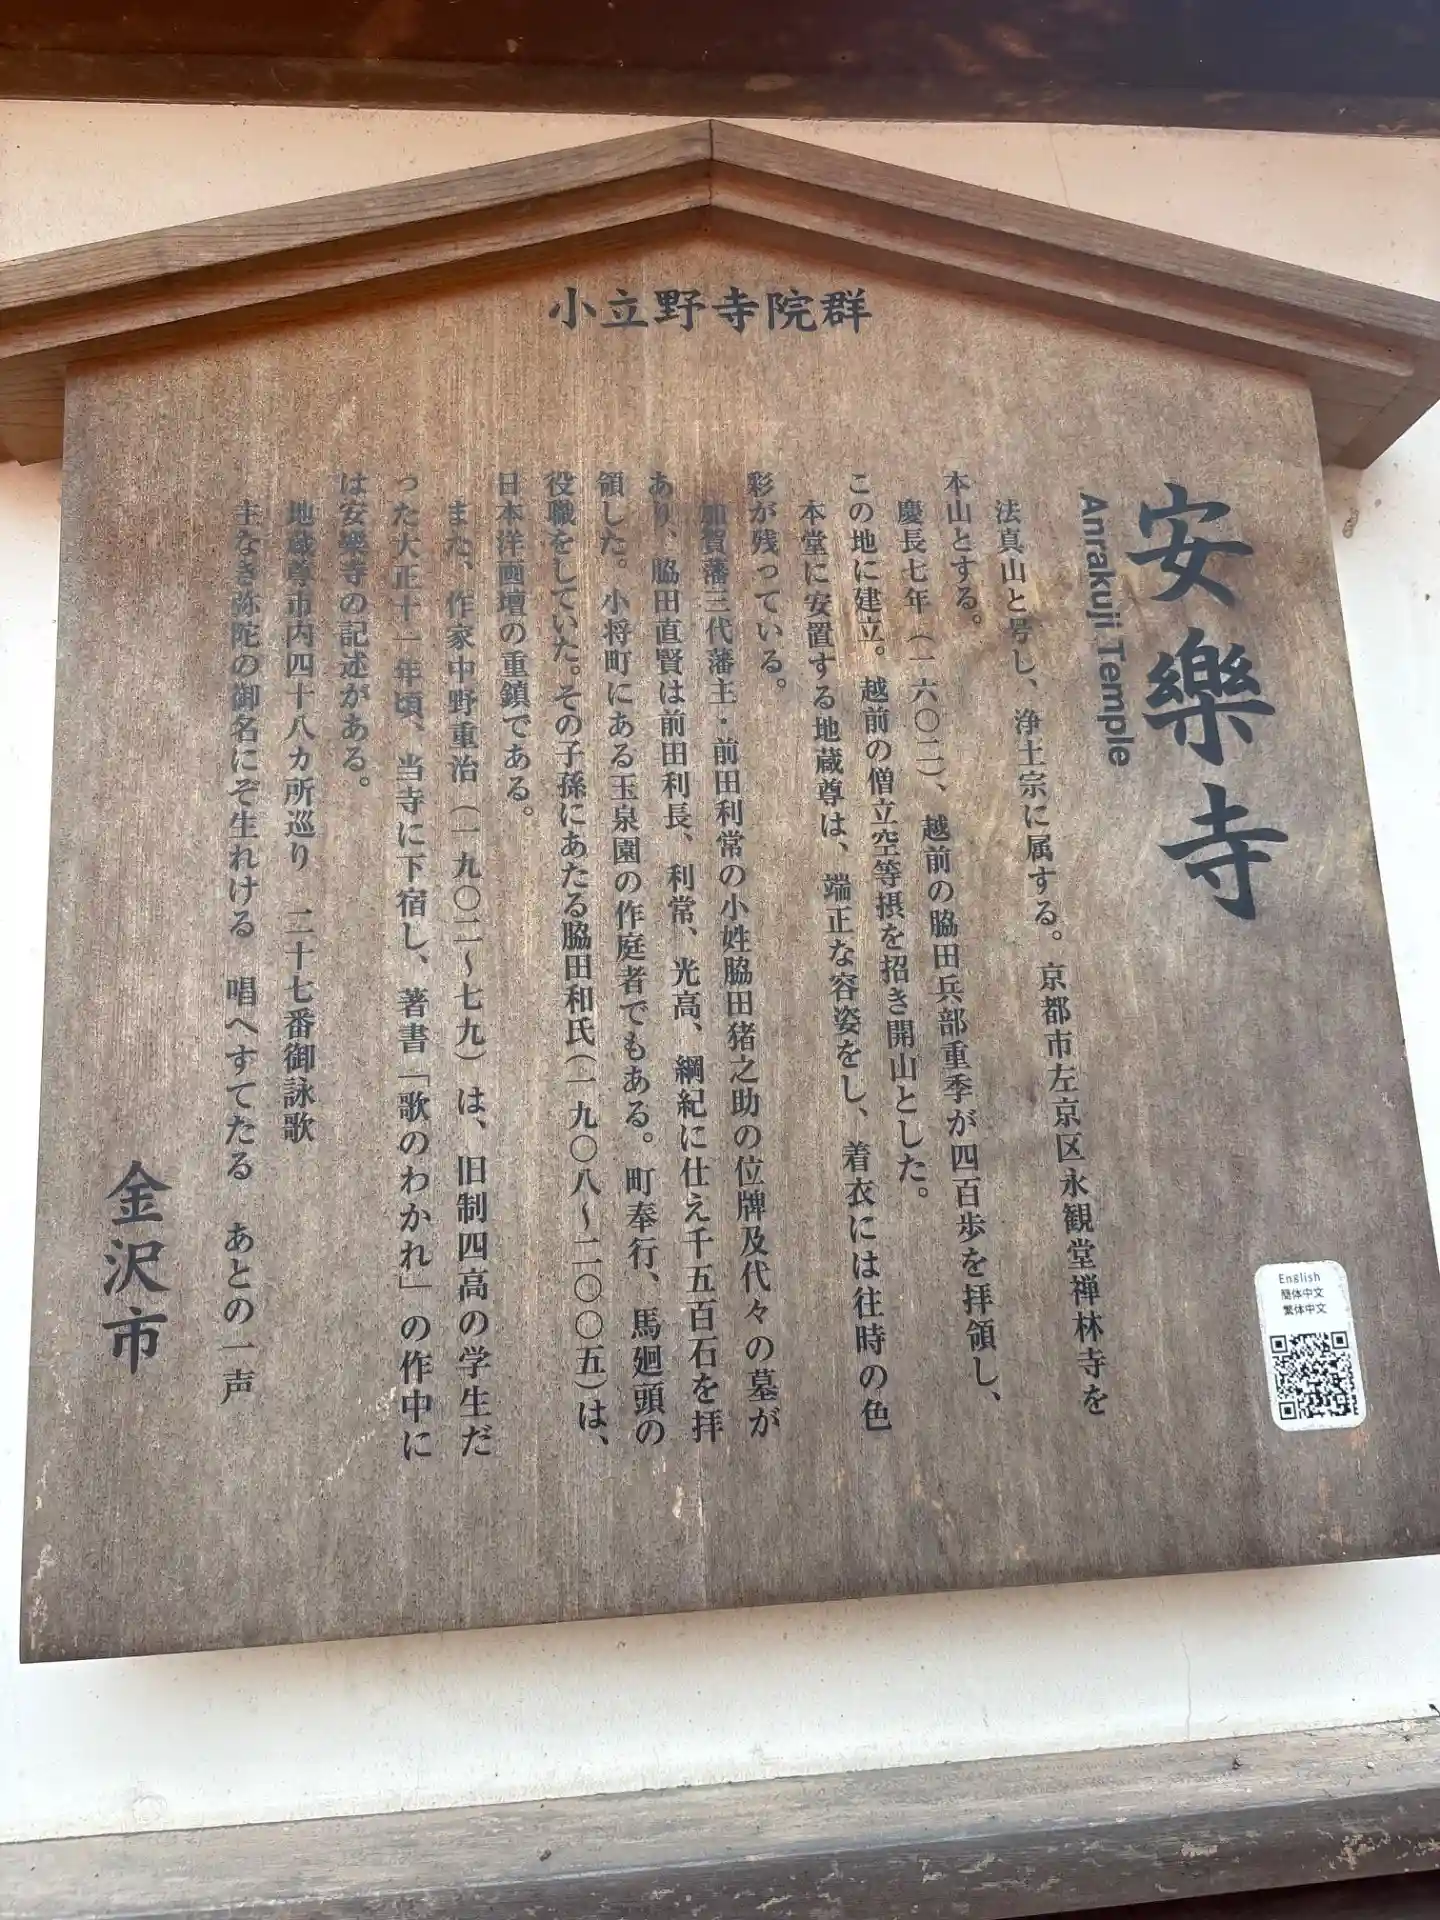 小立野寺院群
安樂寺
Anrakuji Temple
法真山と号し、浄土宗に属する。京都市左京区永観堂禅林寺を
本山とする。
慶長七年（一六〇二）、越前の脇田兵部重季が四百歩を拝領し、
この地に建立。越前の僧立空等摂を招き開山とした。
本堂に安置する地蔵尊は、端正な容姿をし、着衣には往時の色
彩が残っている。
加賀藩三代藩主・前田利常の小姓脇田猪之助の位牌及代々の墓が
あり、脇田直賢は前田利長、利常、光高、綱紀に仕え千五百石を拝
領した。小将町にある玉泉園の作庭者でもある。町奉行、馬廻頭の
役職をしていた。その子孫にあたる脇田和氏（一九〇八〜二〇〇五）は、
日本洋画壇の重鎮である。
また、作家中野重治（一九〇二〜七九）は、旧制四高の学生だ
った大正十一年頃、当寺に下宿し、著書「歌のわかれ」の作中に
は安樂寺の記述がある。
地蔵尊市内四十八カ所巡り　二十七番御詠歌
主なき弥陀の御名にぞ生れける　唱へすてたる　あとの一声
金沢市
English
簡体中文
繁体中文